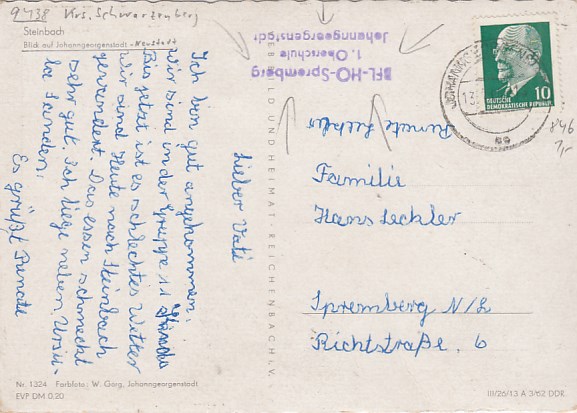 9438 Krs. Schwarzenberg
Steinbach
Blick auf Johanngeorgenstadt-Neustadt
Lieber Vati
Ich bin gut angekommen.
Wir sind in der Gruppe 11
Bis jetzt ist es schlechtes Wetter
Wir sind Heute nach Steinbach
gewandert. Das essen schmeckt
sehr gut. Ich liege neben Ursu-
la
Es grüßt Renate
Nr. 1324 Farbfoto: W. Gorg, Johanngeorgenstadt
EVP DM 0,20
BILD UND HEIMAT · REICHENBACH I. V.
BFL-HO-Spremberg
1. Oberschule
Johanngeorgenstadt
Renate Leckler
DEUTSCHE
DEMOKRATISCHE REPUBLIK
10
Familie
Hans Leckler
Spremberg N/L
Richtstraße 6
III/26/13 A 3/62 DDR